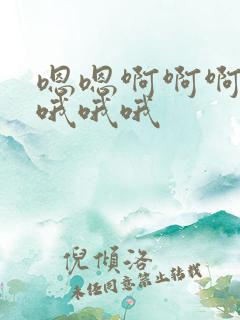 嗯嗯啊啊啊
哦哦哦
倪傾洛
未经同意禁止转载